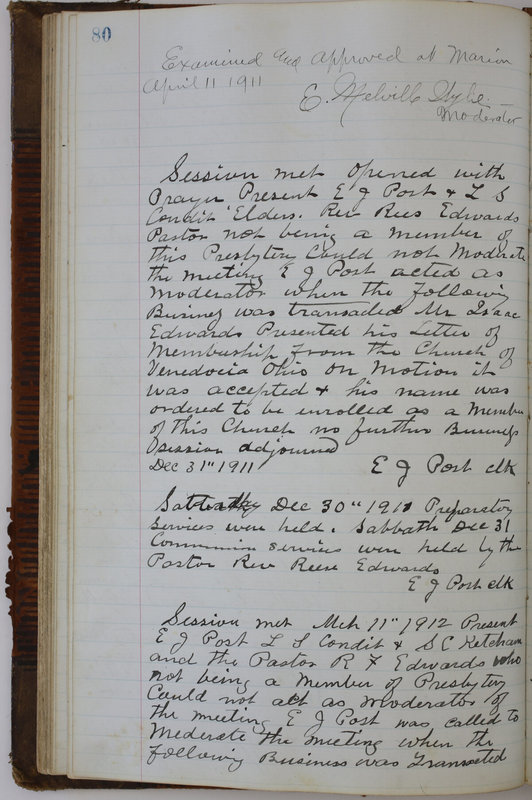 80
Examined and Approved at Marion
April 11 1911
E. Melville Wylie.
Moderator
Session met opened with
Prayer Present E J Post & L S
Condit Elders. Rev Rees Edwards
Pastor not being a member of
this Presbytery Could not Moderate
the meeting E J Post acted as
Moderator when the following
Business was transacted Mr Isaac
Edwards Presented his Letter of
Membership from the Church of
Venedocia Ohio on Motion it
was accepted & his name was
ordered to be enrolled as a Member
of this Church no further Business
session adjourned
Dec 31" 1911 E J Post clk
Dec 30" 1911 Preparatory
services were held. Sabbath Dec 31
Communion services were held by the
Pastor Rev Reese Edwards
E J Post clk
Session met Mch 11" 1912 Present
E J Post L S Condit & S C Ketcham
and the Pastor R F Edwards who
not being a Member of Presbytery
Could not act as Moderator of
the meeting E J Post was called to
Mederate the meeting when the
following Business was Transacted